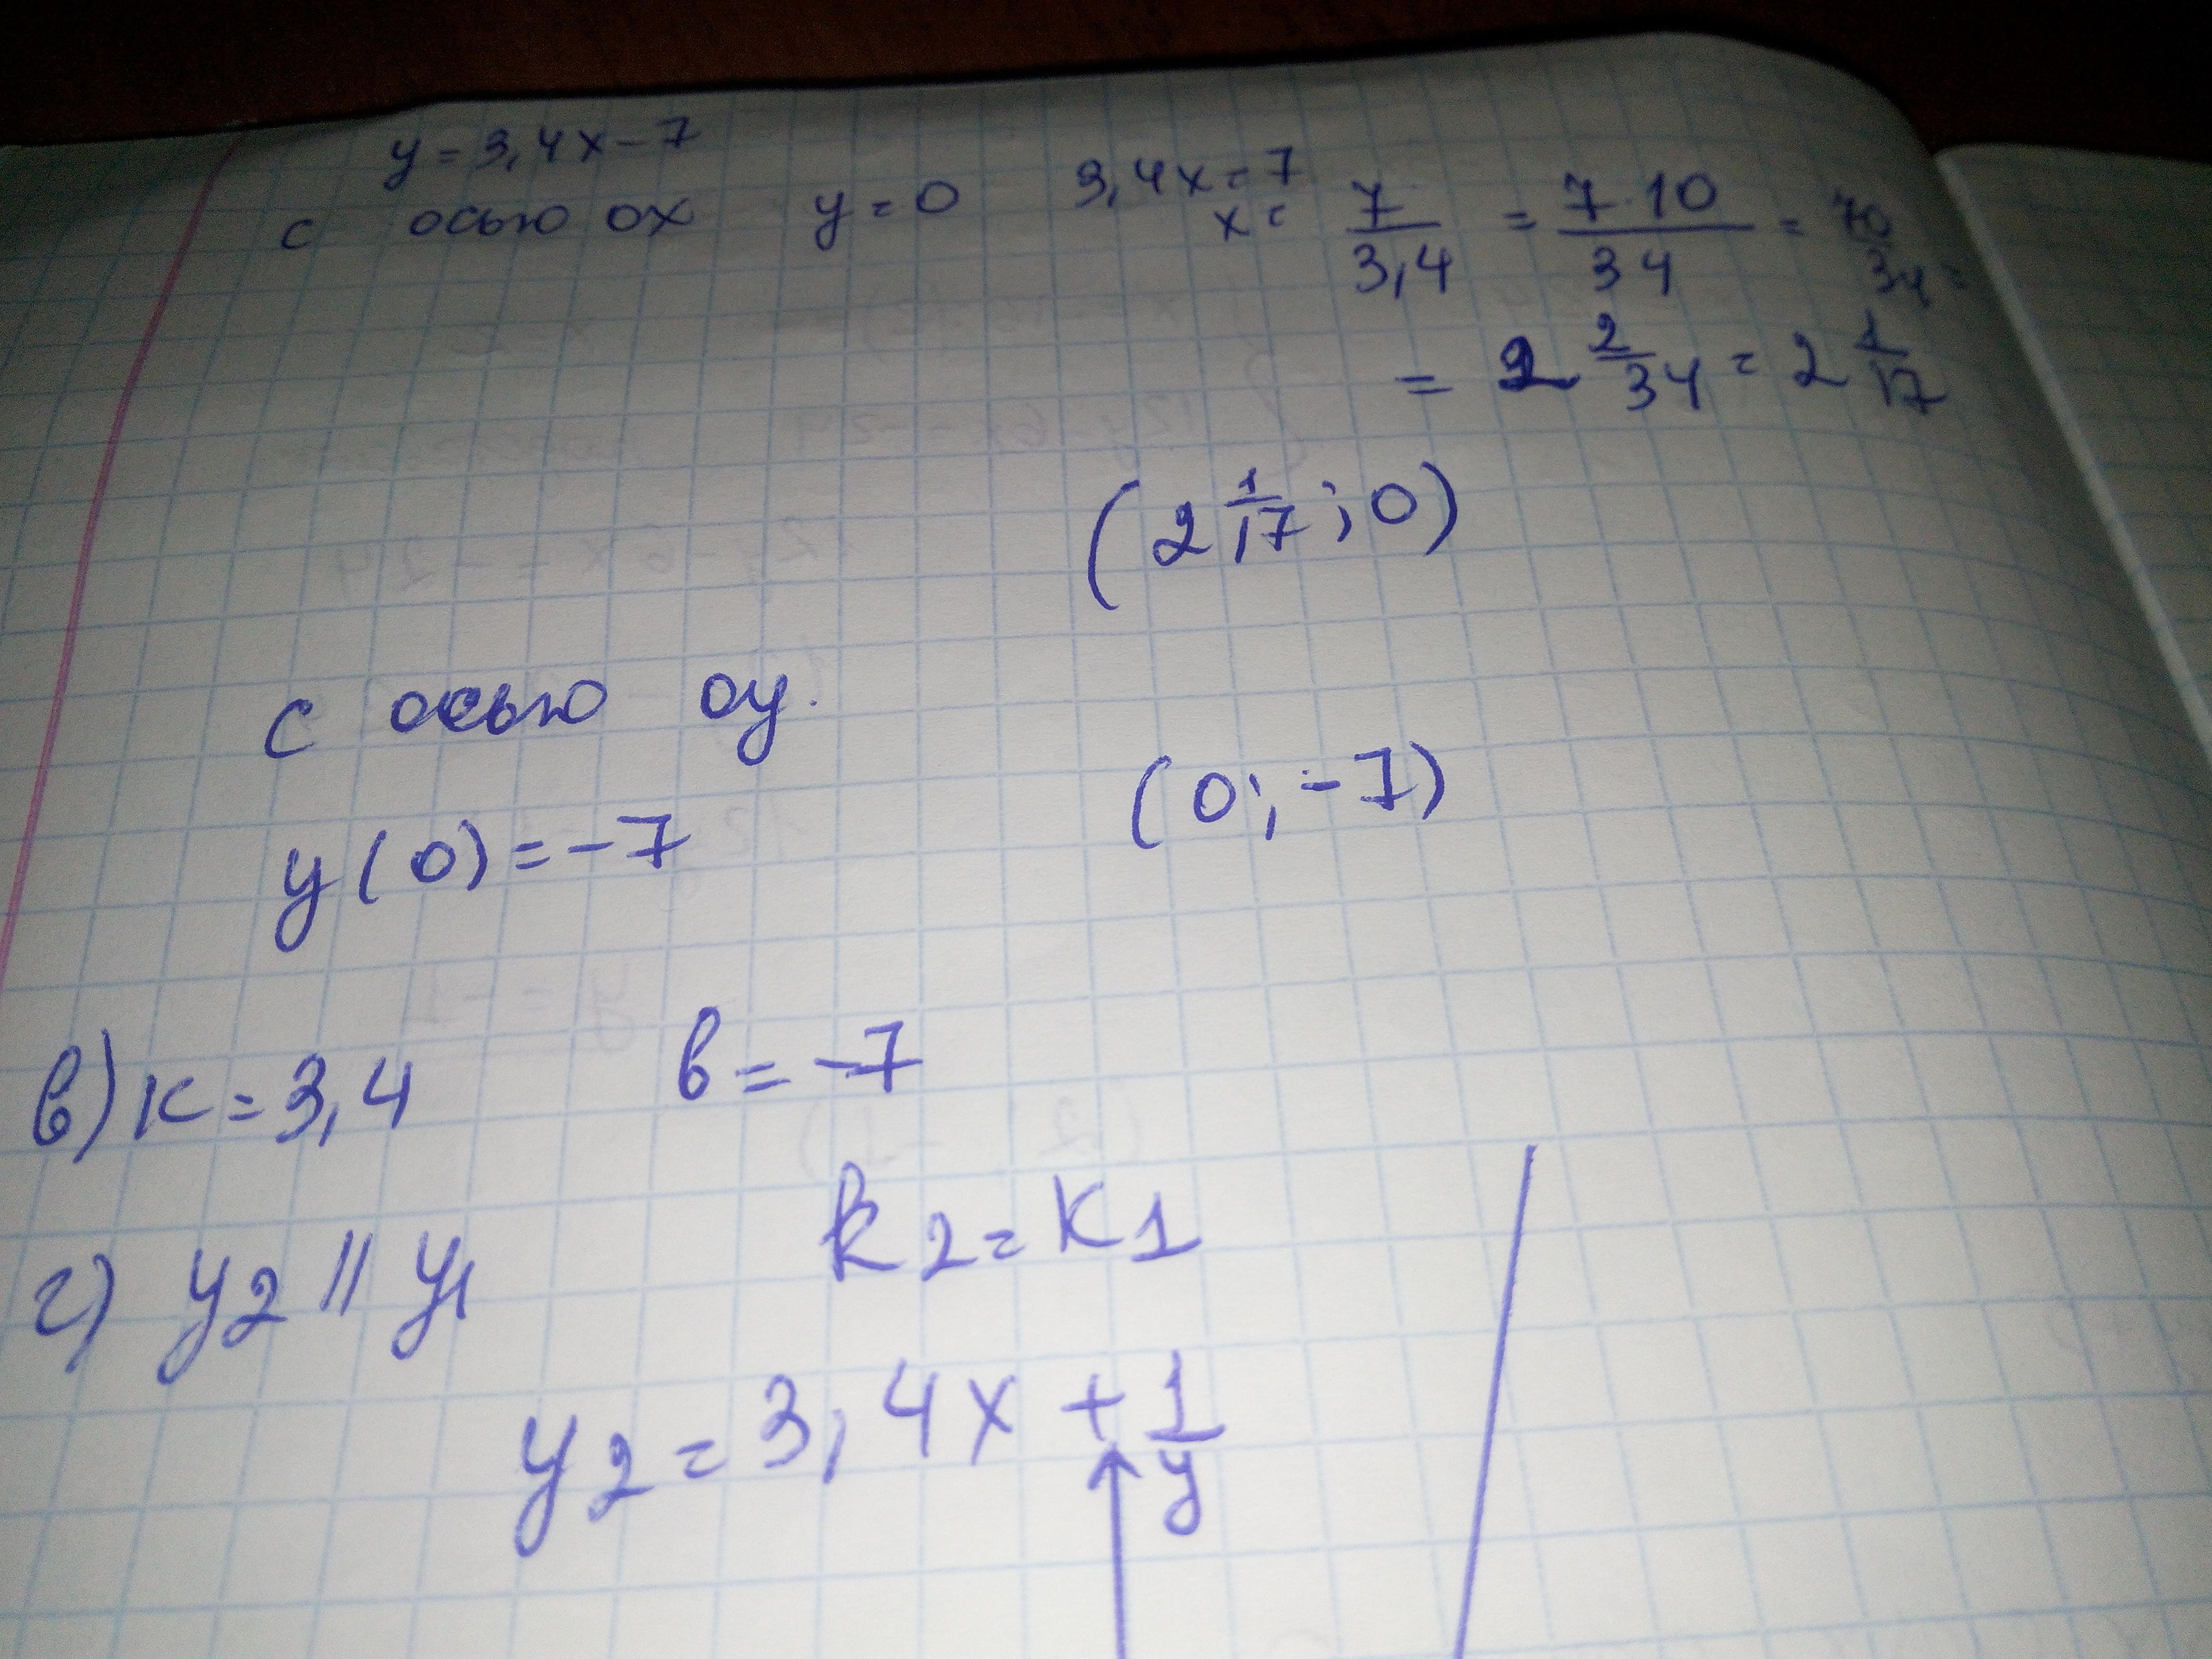 y = 3,4x - 7
с осью ox y = 0 3,4x = 7
x = 7/3,4 = 7·10/34 = 70/34 =
= 2 2/34 = 2 1/17
(2 1/17; 0)
с осью oy.
y(0) = -7 (0; -7)
в) k = 3,4 b = -7
г) y2 || y1 k2 = k1
y2 = 3,4x + 1
y